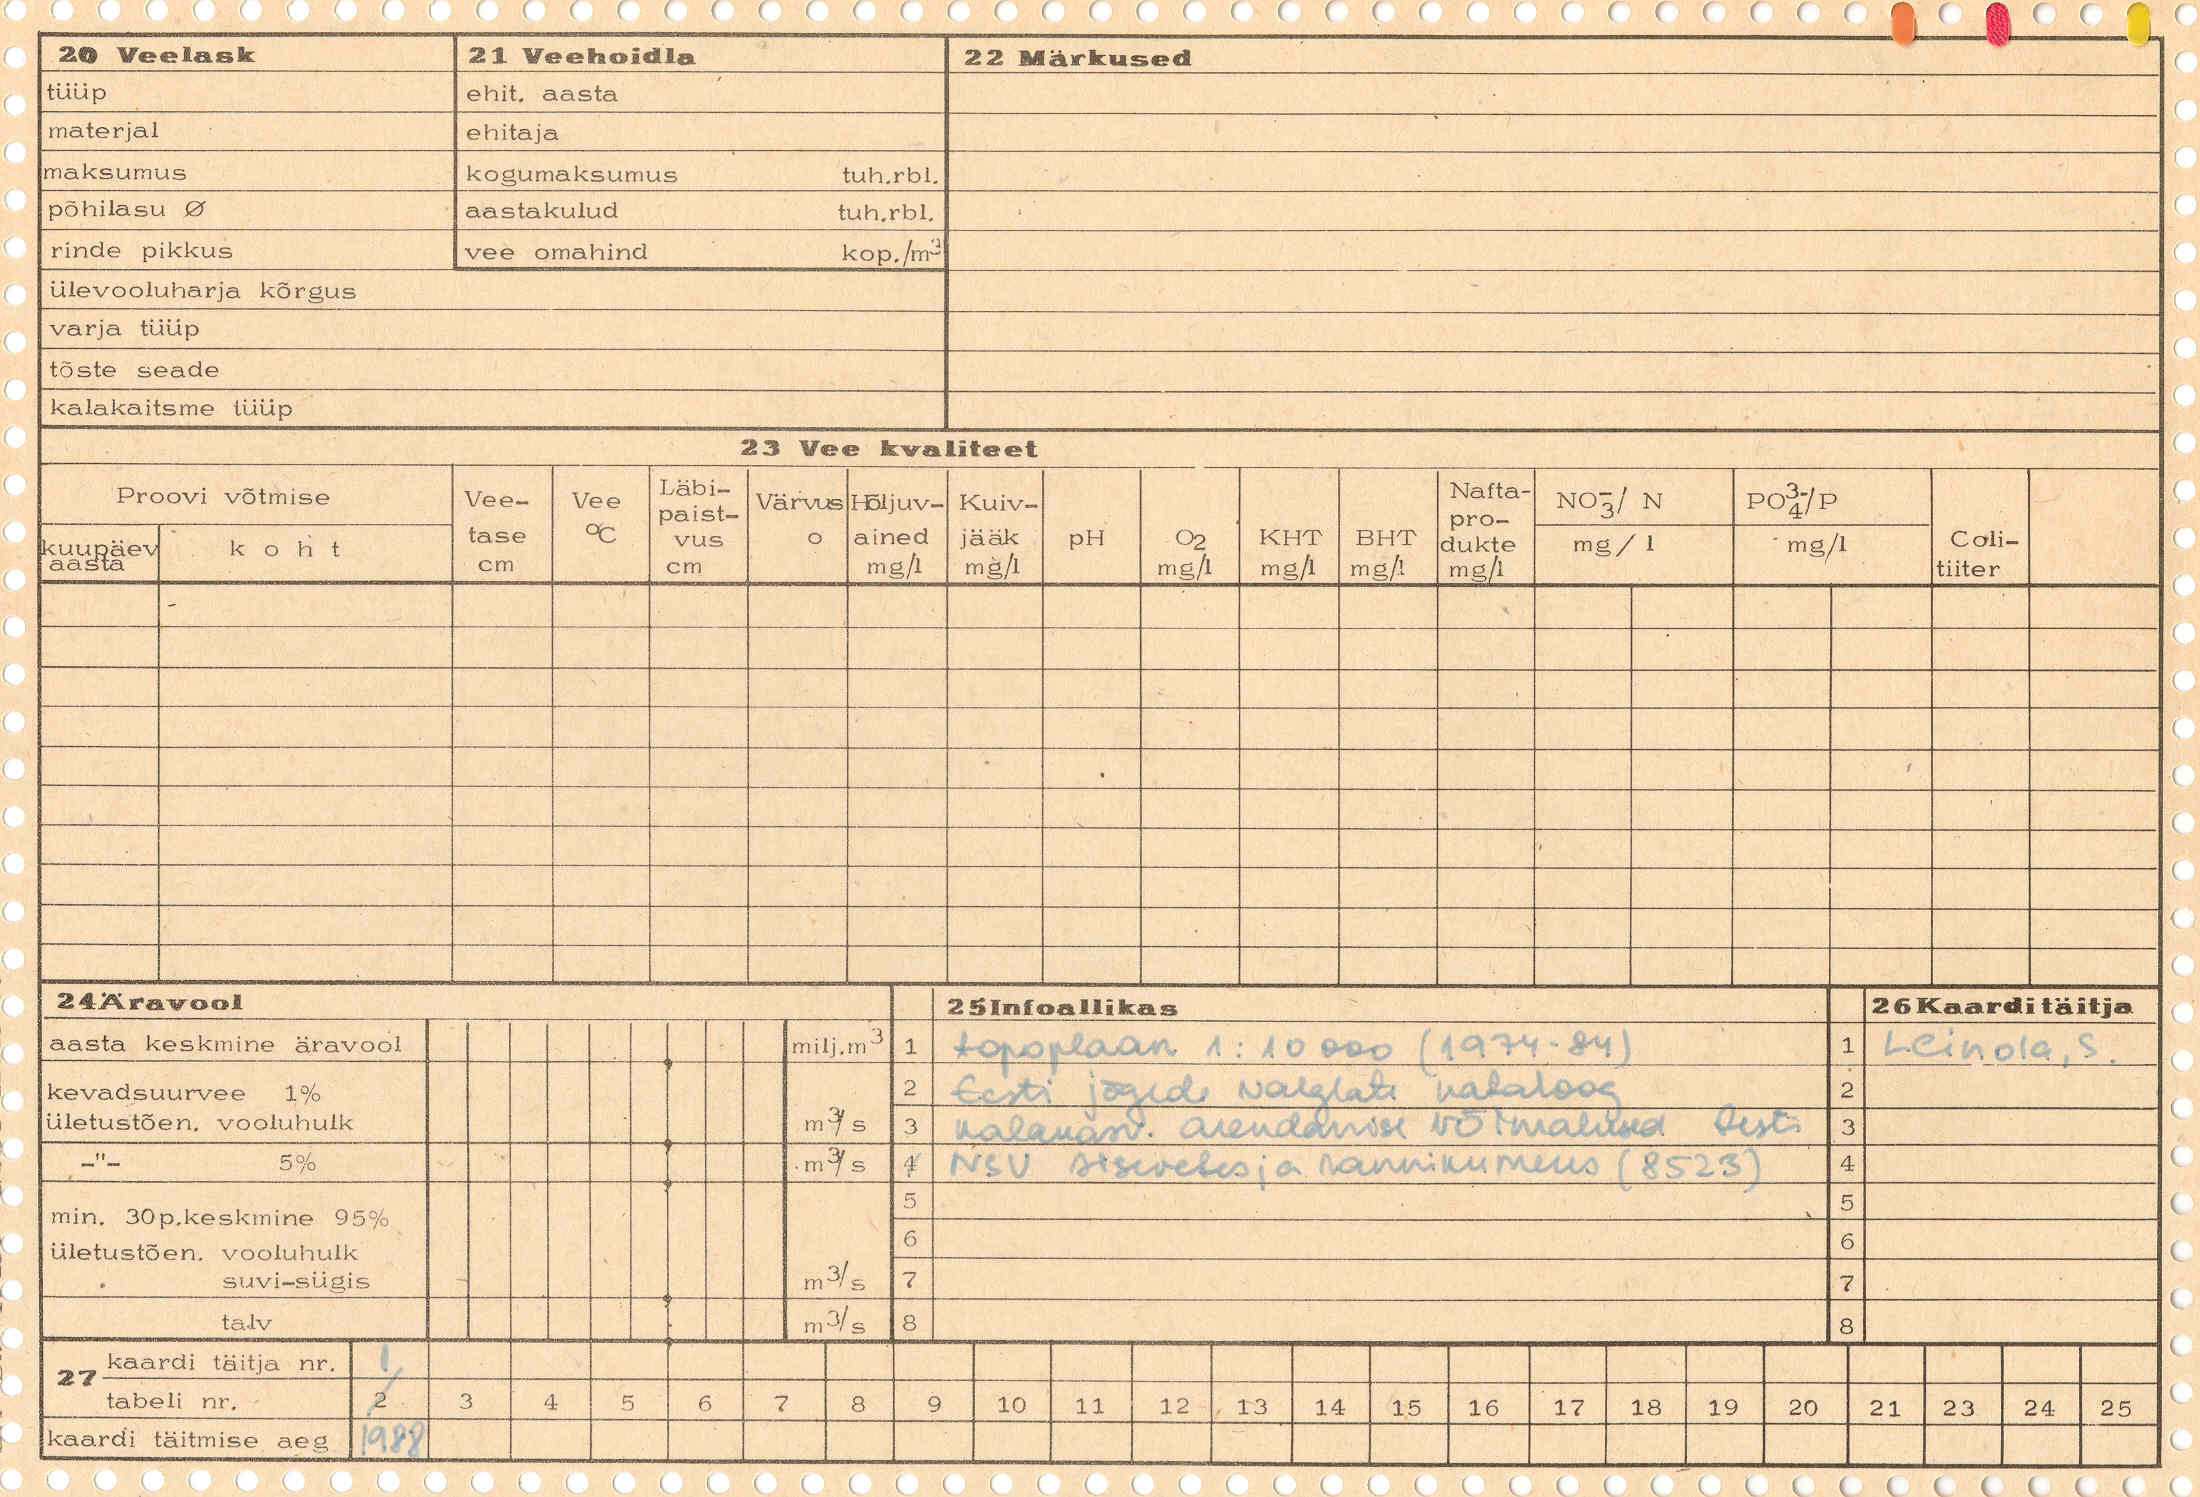 20 Veelask
tüüp
materjal
maksumus
põhilasu Ø
rinde pikkus
ülevooluharja kõrgus
varja tüüp
tõste seade
kalakaitsme tüüp
21 Veehoidla
ehit. aasta
ehitaja
kogumaksumus tuh.rbl.
aastakulud tuh.rbl.
vee omahind kop./m³
22 Märkused
23 Vee kvaliteet
Proovi võtmise
kuupäev aasta
koht
Vee-tase cm
Vee °C
Läbi-paist-vus cm
Värvus o
Hõljuv-ained mg/l
Kuiv-jääk mg/l
pH
O₂ mg/l
KHT mg/l
BHT mg/l
Nafta-pro-dukte mg/l
NO₃⁻/ N mg/l
PO₄³⁻/P mg/l
Coli-tiiter
24 Äravool
aasta keskmine äravool milj.m³
kevadsuurvee 1%
ületustõen. vooluhulk m³/s
-"- 5% m³/s
min. 30p.keskmine 95%
ületustõen. vooluhulk
suvi-sügis m³/s
talv m³/s
25 Infoallikas
1 topoplaan 1:10 000 (1974-84)
2 Eesti jõgede valglate kataloog
3 kalakasv. arendamise võimalused Eesti
4 NSV sisevetes ja rannikumeres (8523)
5
6
7
8
26 Kaarditäitja
1 Leinola, S.
2
3
4
5
6
7
8
27 kaardi täitja nr. 1
tabeli nr. 2 3 4 5 6 7 8 9 10 11 12 13 14 15 16 17 18 19 20 21 23 24 25
kaardi täitmise aeg 1988